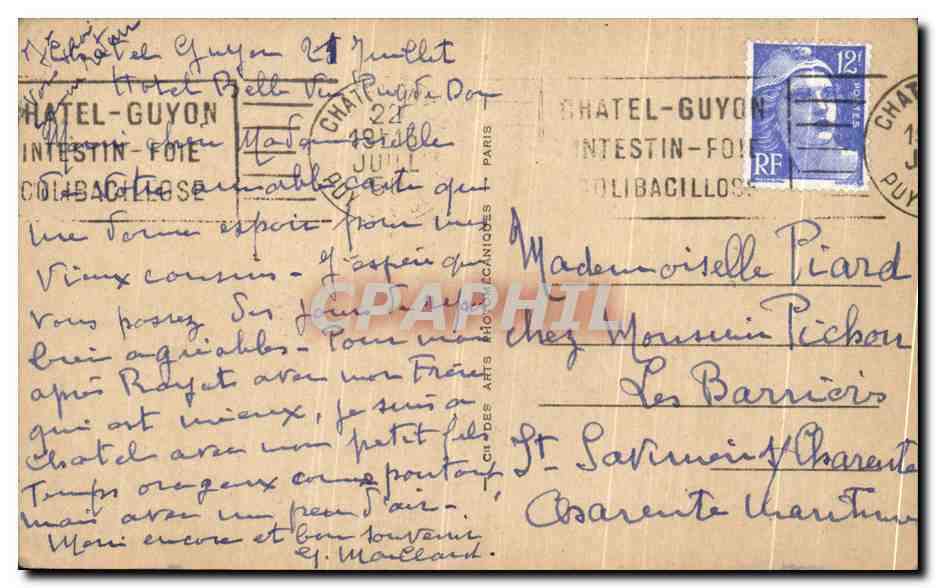 Châtel Guyon 21 Juillet
Hotel Belle Vue Puy de Dome
Merci chère Mademoiselle
de votre aimable carte qui
me donne espoir pour mes
vieux cousins - J'espère que
vous passez des jours de repos
bien agréables - Pour moi
après Royat avec mon Frère
qui est mieux, je suis à
Chatel avec mon petit fils
Temps orageux comme partout,
mais avec un peu d'air -
Merci encore et bon souvenir
G. Maillard.
CHATEL-GUYON
INTESTIN-FOIE
COLIBACILLOSE
CHAT
22
JUIL
CIE DES ARTS PHOTOMÉCANIQUES - PARIS
CHATEL-GUYON
INTESTIN-FOIE
COLIBACILLOSE
12F
POSTES
RF
CHAT
PUY
Mademoiselle Piard
chez Monsieur Pichon
Les Barrières
St Savinien s/Charente
Charente Maritime
CPAPHIL